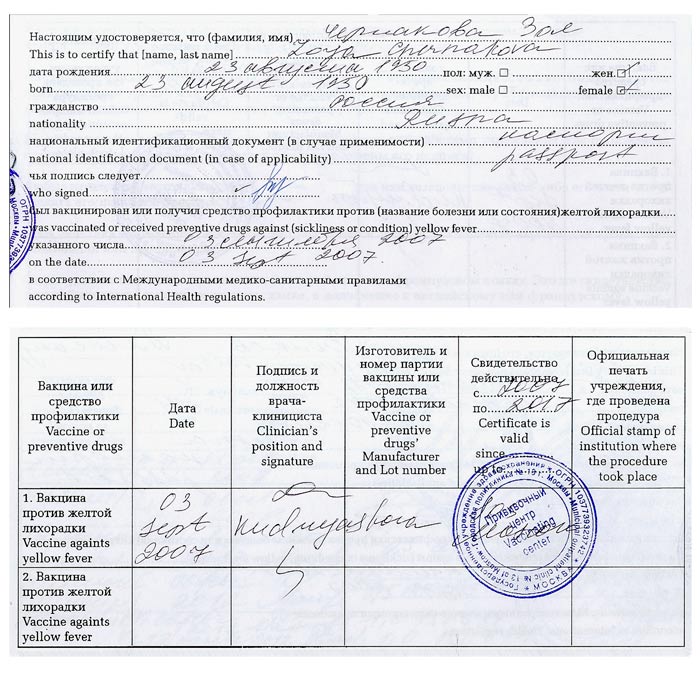 Настоящим удостоверяется, что (фамилия, имя) Чернакова Зоя
This is to certify that [name, last name] Zoya Chernakova
дата рождения 23 августа 1950 пол: муж. □ жен. ☑
born 23 august 1950 sex: male □ female ☑
гражданство Россия
nationality
национальный идентификационный документ (в случае применимости) паспорт
national identification document (in case of applicability) passport
чья подпись следует
who signed
был вакцинирован или получил средство профилактики против (название болезни или состояния)желтой лихорадки
was vaccinated or received preventive drugs against (sickliness or condition) yellow fever
указанного числа 03 сентября 2007
on the date 03 sept 2007.
в соответствии с Международными медико-санитарными правилами
according to International Health regulations.
Вакцина или
средство
профилактики
Vaccine or
preventive drugs
Дата
Date
Подпись и
должность
врача-
клинициста
Clinician's
position and
signature
Изготовитель и
номер партии
вакцины или
средства
профилактики
Vaccine or
preventive
drugs'
Manufacturer
and Lot number
Свидетельство
действительно
с 2007
по 2017
Certificate is
valid
since
up to
Официальная
печать
учреждения,
где проведена
процедура
Official stamp of
institution where
the procedure
took place
1. Вакцина
против желтой
лихорадки
Vaccine againts
yellow fever
03
sept
2007
Kudryashova
Прививочный
центр
Vaccinating
center
2. Вакцина
против желтой
лихорадки
Vaccine againts
yellow fever